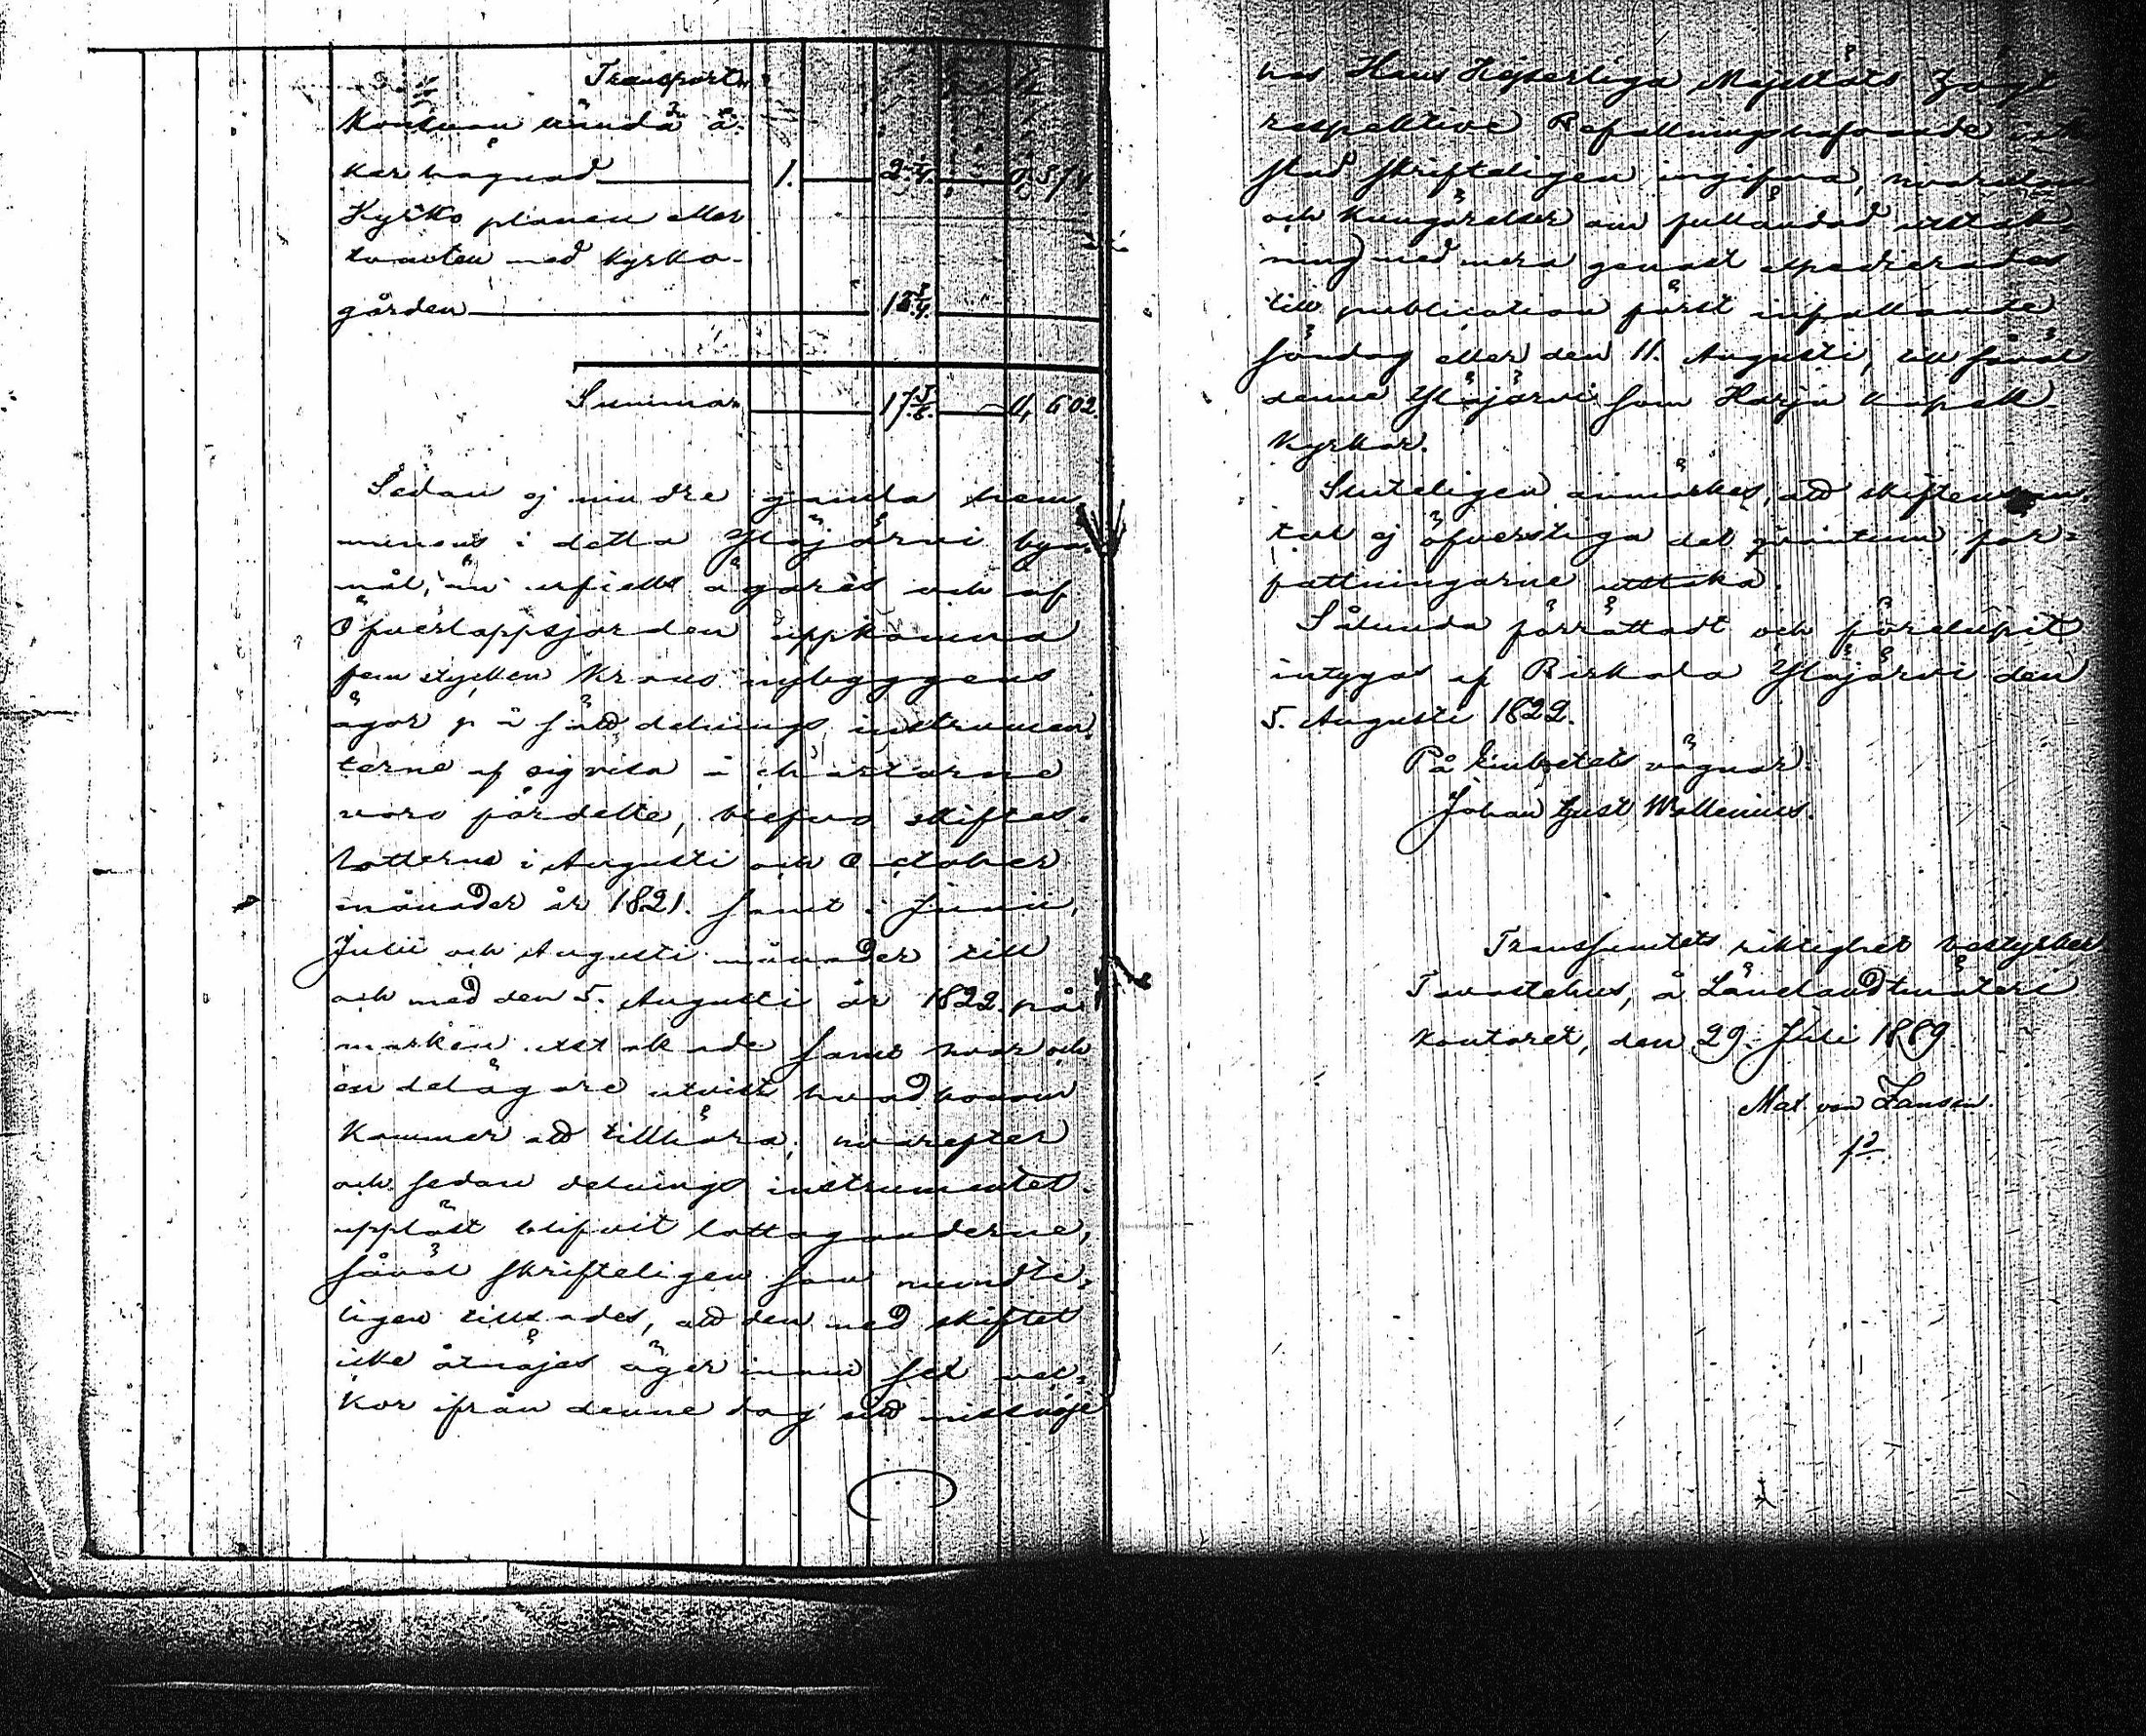 Transport
Konturin ändå å-
ker hagnad 1. 2 1/4.
Kyrko planen eller
tomten med kyrko-
gården 13 3/4.
Summa 17 5/6. 4,602.
Sedan ej mindre gamla hem-
manens i detta Ylöjärvi bya-
mål, än urfjells ägares och af
Öfverloppsjorden uppkomna
fem stycken Krono nybyggens
ägor på sätt delnings instrumen-
terne af sig visa i chartorne
voro fördelte, blefvo skiftes-
lotterne i Augusti och October
månader år 1821. samt i Junii,
Julii och Augusti månader till
och med den 5. Augusti år 1822. på
marken utstakade samt hvar och
en delägare utvist hvad honom
kommer att tillhöra; hvarefter
och sedan delnings instrumentet
uppläst blifvit lottaganderne,
såväl skrifteligen som mundte-
ligen tillsades, att den med skiftet
icke åtnöjes äger inom sex vec-
kor ifrån denne dag sitt missnöje
hos Hans Kejserliga Majestäts
respektive Befallningshafvande
stad skrifteligen ingifva, hvaröfver
och kungörelser om fulländad utstak-
ning med mera genast expedierades
till publication först infallande
söndag eller den 11. Augusti, till såväl
denne Ylöjärvi som Harju kapell
kyrkor.
Sluteligen anmärkes, att skiftesman-
tal ej öfverstiga det quantum för-
fattningarne utstaka.
Sålunda förrättadt och förelupit
intygas af Birkala Ylöjärvi den
5. Augusti 1822.
På Embetets vägnar.
Johan Gust Wallenius.
Transsumtets riktighet bestyrker
Tavastehus, å Länelandtmäteri
kontoret, den 29. Juli 1889.
Max von Jansen.